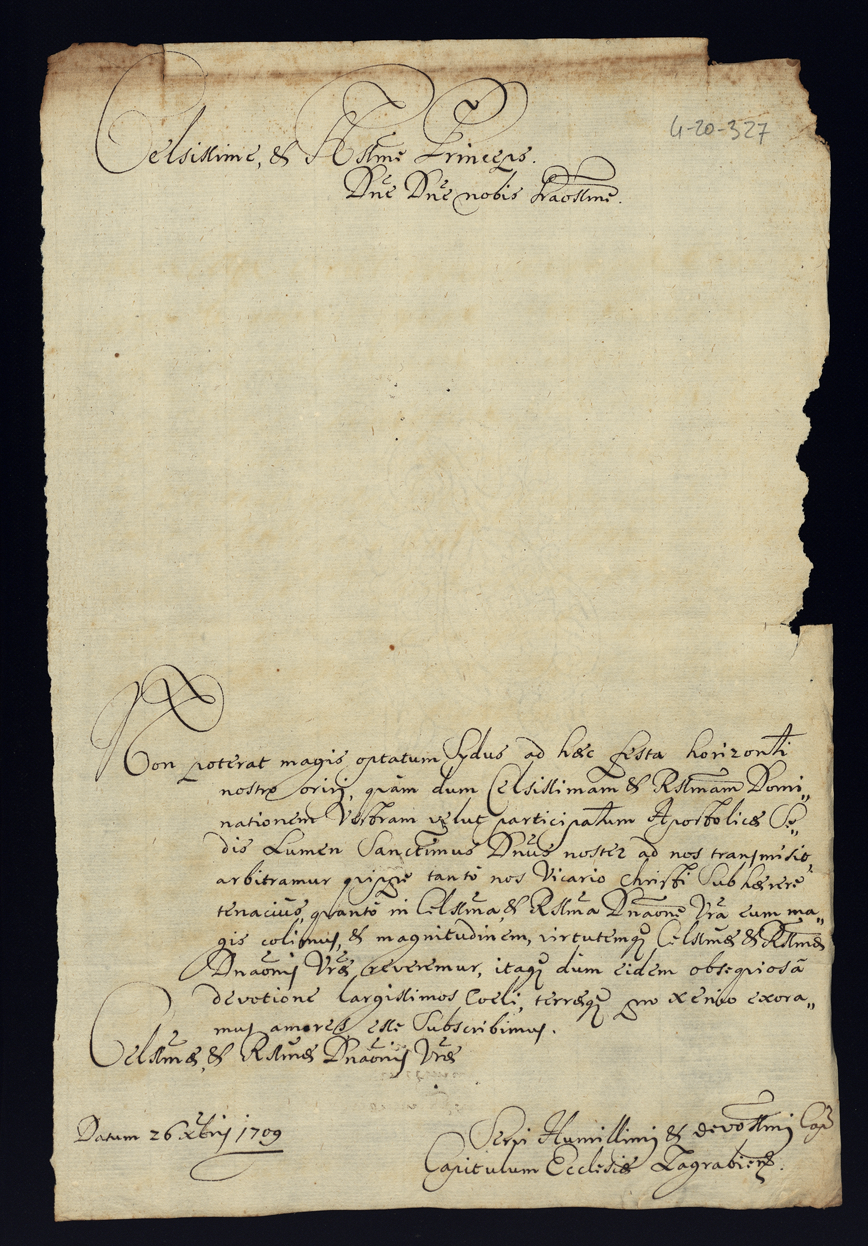 4-20-327
Celsissime, & Rssme Princeps.
Dne Dne nobis Graossme.
Non poterat magis optatum Sydus ad hæc festa horizonti
nostro oriri, quàm dum Celsissimam & Rssmam Domi„
nationem Vestram velut participatum Apostolicæ Se„
dis Lumen Sanctimus Dnus noster ad nos transmisit,
arbitramur quippe tantò nos Vicario Christi Subhærere
tenaciùs, quantò in Celssma, & Rssma Dnaone Vra eum ma„
gis colimus, & magnitudinem, virtutemq Celssmæ & Rssmæ
Dnaonis Vræ reveremur, itaq dum eidem obsequiosâ
devotione largissimos Coeli, terræq pro xenio exora„
mus amores esse Subscribimus.
Celssmæ, & Rssmæ Dnaonis Vræ
Datum 26 Xbris 1709
Servi Humillimi & devotssmi
Capitulum Ecclesiæ Zagrabiens.